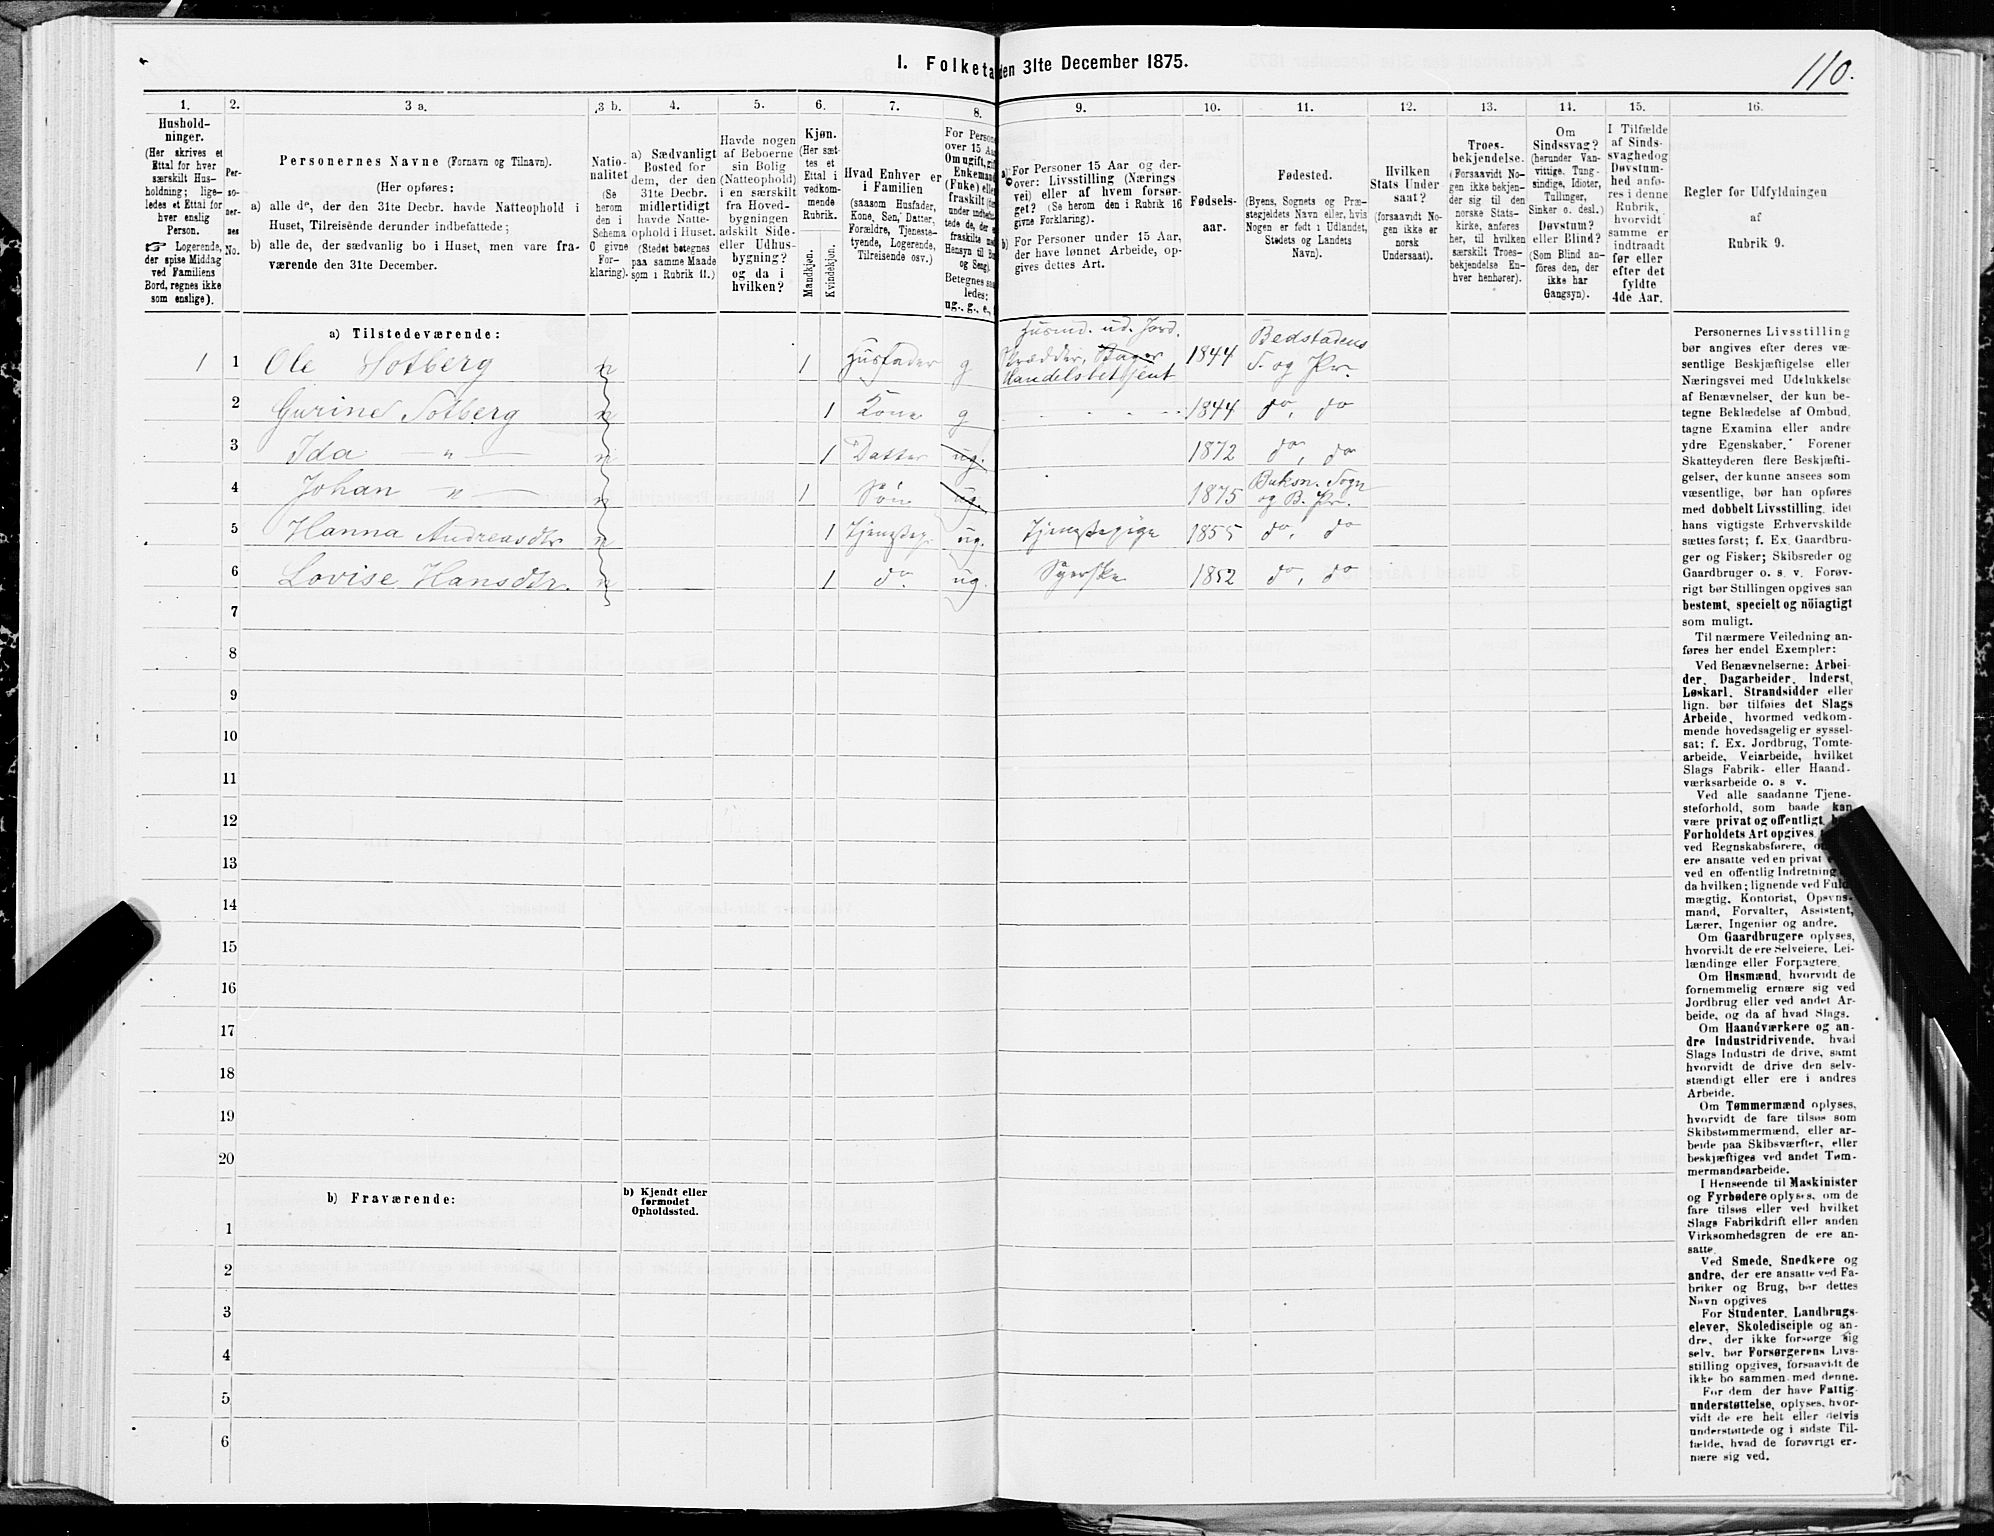 1. Folketæ
den 31te December 1875.
110.
1.
2.
3 a.
3 b.
4.
5.
6.
7.
8.
9.
10.
11.
12.
13.
14.
15.
16.
Hushold-
ninger.
(Her skrives et
Ettal for hver
særskilt Hus-
holdning; lige-
ledes et Ettal for
hver enslig
Person.
☞ Logerende,
der spise Middag
ved Familiens
Bord, regnes ikke
som enslige).
Per-
so-
ner-
nes
No.
Personernes Navne (Fornavn og Tilnavn).
(Her opføres:
a) alle de, der den 31te Decbr. havde Natteophold i
Huset, Tilreisende derunder indbefattede;
b) alle de, der sædvanlig bo i Huset, men vare fra-
værende den 31te December.
Natio-
nalitet
(Se
herom
den i
Schema
C givne
For-
klaring).
a) Sædvanligt
Bosted for
dem, der den
31te Decbr.
midlertidigt
havde Natte-
ophold i Huset.
(Stedet betegnes
paa samme Maade
som i Rubrik 11.)
Havde nogen
af Beboerne
sin Bolig
(Natteophold)
i en særskilt
fra Hoved-
bygningen
adskilt Side-
eller Udhus-
bygning?
og da i
hvilken?
Kjøn.
(Her sæt-
tes et
Ettal i
vedkom-
mende
Rubrik.
Mandkjøn.
Kvindekjøn.
Hvad Enhver er
i Familien
(saasom Husfader,
Kone, Søn, Datter,
Forældre, Tjeneste-
tyende, Logerende,
Tilreisende osv.)
For Person
over 15 Aar
Om ugift, gift
Enkemand
(Fuke) elle
fraskilt
Betegnes saa
ledes:
ug., g., e.,
a) For Personer 15 Aar og der-
over: Livsstilling (Nærings
vei) eller af hvem forsør-
get? (Se herom den i Rubrik 16
givne Forklaring).
b) For Personer under 15 Aar,
der have lønnet Arbeide, op-
gives dettes Art.
Fødsels-
aar.
Fødested.
(Byens, Sognets og Præ-
stegjeldets Navn eller, hvis
Nogen er født i Udlandet,
Stedets og Landets
Navn).
Hvilken
Stats Under
saat?
(forsaavidt No-
gen ikke er
norsk
Undersaat).
Troes-
bekjendelse.
(Forsaavidt No-
gen ikke bekjen-
der sig til den
norske Stats-
kirke, anføres
her, til hvilken
særskilt Troes-
bekjendelse En-
hver henhører).
Om
Sindssvag?
(herunder Van-
vittige, Tung-
sindige, Idioter,
Tullinger,
Sinker o. desl.)
Døvstum?
eller Blind?
(Som Blind an-
føres den, der
ikke har
Gangsyn).
I Tilfælde
af Sinds-
svaghed og
Døvstum-
hed anfø-
res i denne
Rubrik,
hvorvidt
samme er
indtraadt
før eller
efter det
fyldte
4de Aar.
Regler for Udfyldningen
af
Rubrik 9.
a) Tilstedeværende:
1 1 Ole Solberg n 1 Husfader g Husmd. ud. Jord. Skrædder, Handelsbetjent 1844 Bedstadens S. og Pr.
2 Gurine Solberg n 1 Kone g 1844 do, do
3 Ida — " — n 1 Datter ug. 1872 do, do
4 Johan — " — n 1 Søn ug. 1875 Buksn. Sogn og B. Pr.
5 Hanna Andreasdtr n 1 Tjenestep. ug. Tjenestepige 1855 do, do
6 Lovise Hansdtr. n 1 do. ug. Syerske 1852 do, do
7
8
9
10
11
12
13
14
15
16
17
18
19
20
b) Fraværende:
b) Kjendt eller
formodet
Opholdssted.
1
2
3
4
5
6
Personernes Livsstilling
bør angives efter deres væ-
sentlige Beskjæftigelse eller
Næringsvei med Udelukkelse
af Benævnelser, der kun be-
tegne Beklædelse af Ombud,
tagne Examina eller andre
ydre Egenskaber. Forener
Skatteyderen flere Beskjæfti-
gelser, der kunne ansees som
væsentlige, bør han opføres
med dobbelt Livsstilling, idet
hans vigtigste Erhvervskilde
sættes først; f. Ex. Gaardbru-
ger og Fisker; Skibsreder og
Gaardbruger o. s. v. Forøv-
rigt bør Stillingen opgives saa
bestemt, specielt og nöiagtigt
som muligt.
Til nærmere Veiledning an-
føres her endel Exempler:
Ved Benævnelserne: Arbei-
der, Dagarbeider, Inderst,
Løskarl, Strandsidder eller
lign. bør tilføies det Slags
Arbeide, hvormed vedkom-
mende hovedsagelig er syssel-
sat; f. Ex. Jordbrug, Tomte-
arbeide, Veiarbeide, hvilket
Slags Fabrik- eller Haand-
værksarbeide o. s. v.
Ved alle saadanne Tjene-
steforhold, som baade kan
være privat og offentligt,
Forholdets Art opgives,
ved Regnskabsførere,
ere ansatte ved en privat
ved en offentlig Indretning
da hvilken; lignende ved Fuld
mægtig, Kontorist, Opsyns-
mand, Forvalter, Assistent,
Lærer, Ingeniør og andre.
Om Gaardbrugere oplyses,
hvorvidt de ere Selveiere, Lei-
lændinge eller Forpagtere.
Om Husmænd, hvorvidt de
fornemmelig ernære sig ved
Jordbrug eller ved andet Ar-
beide, og da af hvad Slags.
Om Haandværkere og an-
dre Industridrivende, hvad
Slags Industri de drive, samt
hvorvidt de drive den selv-
stændigt eller ere i andres
Arbeide.
Om Tømmermænd oplyses,
hvorvidt de fare tilsøs som
Skibstømmermænd, eller ar-
beide paa Skibsværfter, eller
beskjæftiges ved andet Tøm-
mermandsarbeide.
I Henseende til Maskinister
og Fyrbødere oplyses, om de
fare tilsøs eller ved hvilket
Slags Fabrikdrift eller anden
Virksomhedsgren de ere an-
satte.
Ved Smede, Snedkere og
andre, der ere ansatte ved Fa-
briker og Brug, bør dettes
Navn opgives
For Studenter, Landbrugs-
elever, Skoledisciple og an-
dre, der ikke forsørge sig
selv, bør Forsørgerens Livs-
stilling opgives, forsaavidt de
ikke bo sammen med denne.
For dem, der have Fattig-
understøttelse, oplyses, hvor-
vidt de ere helt eller delvis
understøttede og i sidste Til-
fælde, hvad de forøvrigt er-
nære sig ved.